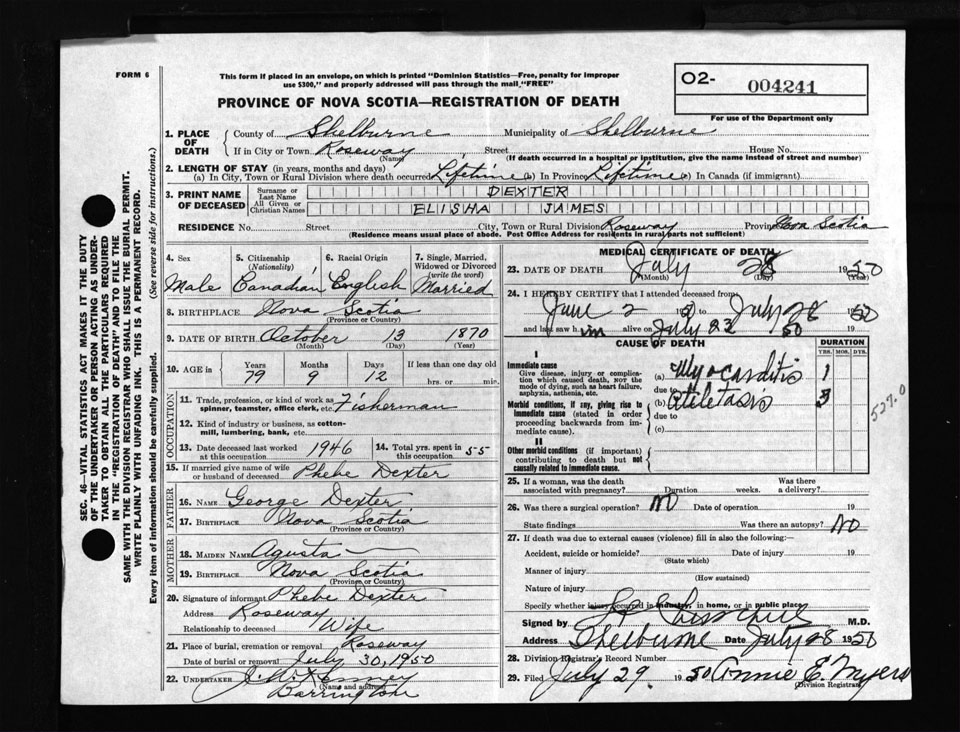 FORM 6
This form if placed in an envelope, on which is printed "Dominion Statistics—Free, penalty for improper
use $300," and properly addressed will pass through the mail "FREE"
PROVINCE OF NOVA SCOTIA—REGISTRATION OF DEATH
O2- 004241
For use of the Department only
SEC. 46—VITAL STATISTICS ACT MAKES IT THE DUTY
OF THE UNDERTAKER OR PERSON ACTING AS UNDER-
TAKER TO OBTAIN ALL THE PARTICULARS REQUIRED
IN THE "REGISTRATION OF DEATH" AND TO FILE THE
SAME WITH THE DIVISION REGISTRAR WHO SHALL ISSUE THE BURIAL PERMIT.
WRITE PLAINLY WITH UNFADING INK. THIS IS A PERMANENT RECORD.
Every item of information should be carefully supplied. (See reverse side for instructions.)
1. PLACE OF DEATH
County of Shelburne Municipality of Shelburne
If in City or Town Roseway Street House No.
(Name) (If death occurred in a hospital or institution, give the name instead of street and number)
2. LENGTH OF STAY (in years, months and days)
(a) In City, Town or Rural Division where death occurred Lifetime (b) In Province Lifetime (c) In Canada (if immigrant)
3. PRINT NAME OF DECEASED
Surname or Last Name DEXTER
All Given or Christian Names ELISHA JAMES
RESIDENCE No. Street City, Town or Rural Division Roseway Province Nova Scotia
(Residence means usual place of abode. Post Office Address for residents in rural parts not sufficient)
4. Sex Male
5. Citizenship (Nationality) Canadian
6. Racial Origin English
7. Single, Married, Widowed or Divorced (write the word) Married
8. BIRTHPLACE Nova Scotia
(Province or Country)
9. DATE OF BIRTH October 13 1870
(Month) (Day) (Year)
10. AGE in Years 79 Months 9 Days 12 If less than one day old hrs. or min.
OCCUPATION
11. Trade, profession, or kind of work as
spinner, teamster, office clerk, etc. Fisherman
12. Kind of industry or business, as cotton-
mill, lumbering, bank, etc.
13. Date deceased last worked at this occupation 1946
14. Total yrs. spent in this occupation 55
15. If married give name of wife
or husband of deceased Phebe Dexter
FATHER
16. NAME George Dexter
17. BIRTHPLACE Nova Scotia
(Province or Country)
MOTHER
18. MAIDEN NAME Agusta —
19. BIRTHPLACE Nova Scotia
(Province or Country)
20. Signature of informant Phebe Dexter
Address Roseway
Relationship to deceased Wife
21. Place of burial, cremation or removal Roseway
Date of burial or removal July 30, 1950
22. UNDERTAKER
(Name and address)
Barrington
MEDICAL CERTIFICATE OF DEATH
23. DATE OF DEATH July 28 1950
(Month) (Day)
24. I HEREBY CERTIFY that I attended deceased from
June 2 50 to July 28 1950
and last saw him alive on July 23 50 19
CAUSE OF DEATH
DURATION
YRS. MOS. DYS.
I
Immediate cause
Give disease, injury or complica-
tion which caused death, NOT the
mode of dying, such as heart failure,
asphyxia, asthenia, etc.
(a) Myocarditis 1
due to
Morbid conditions, if any, giving rise to
immediate cause (stated in order
proceeding backwards from im-
mediate cause).
(b) Atiletasis 3
due to
(c)
527.0
II
Other morbid conditions (if important)
contributing to death but not
causally related to immediate cause.
25. If a woman, was the death
associated with pregnancy? Duration weeks. Was there
a delivery?
26. Was there a surgical operation? No Date of operation 19
State findings Was there an autopsy? No
27. If death was due to external causes (violence) fill in also the following:—
Accident, suicide or homicide? Date of injury 19
(State which)
Manner of injury
(How sustained)
Nature of injury
Specify whether injury occurred in industry, in home, or in public place
Signed by Churchill M.D.
Address Shelburne Date July 28 1950
28. Division Registrar's Record Number
29. Filed July 29 1950 Annie E. Myers
(Division Registrar)